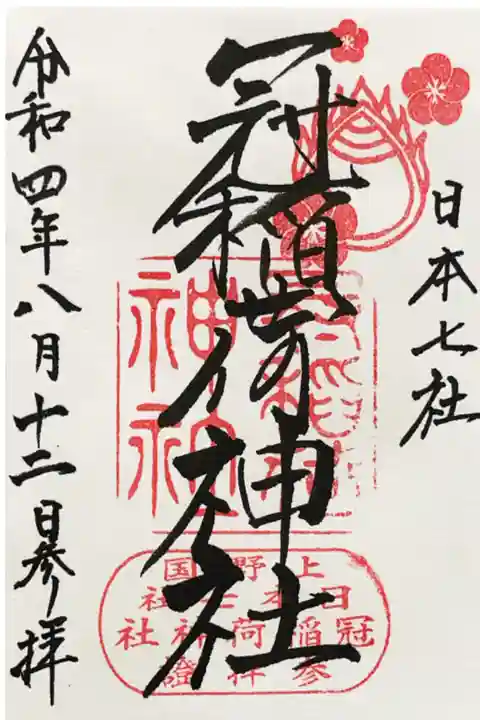 日本七社
冠稲荷神社
令和四年八月十二日参拝
上野国
日本七社
冠稲荷神社
参拝證